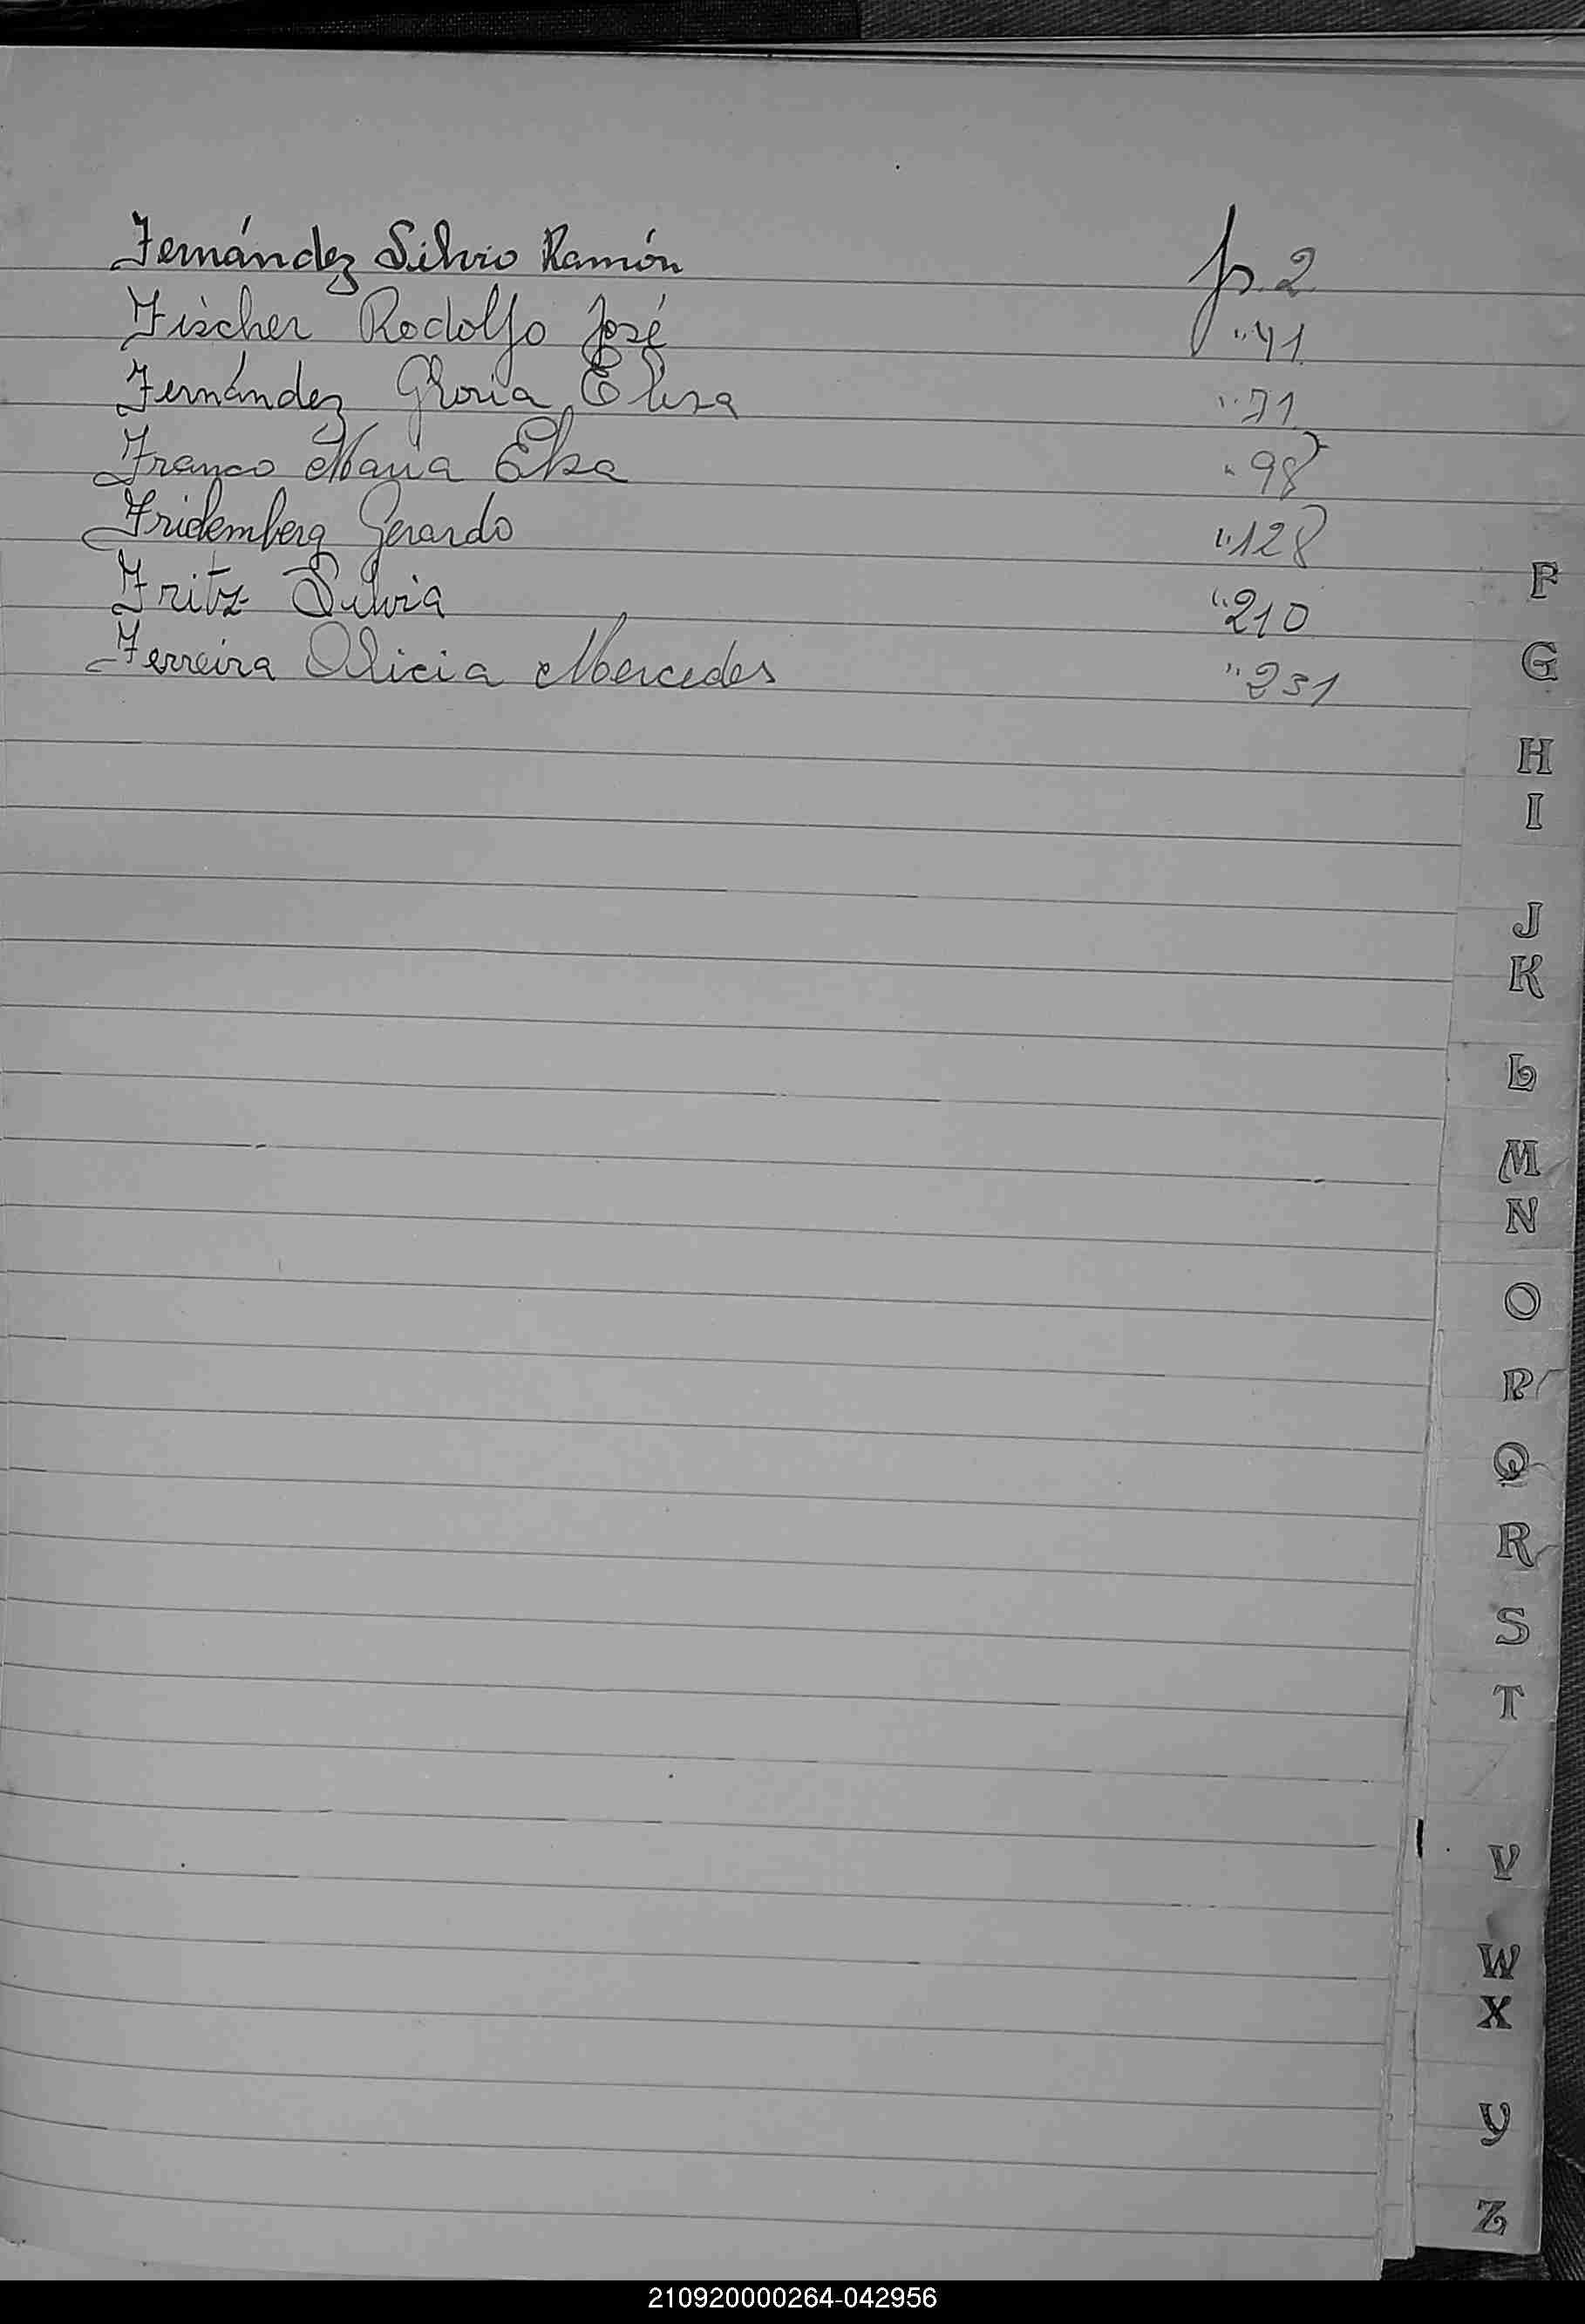 Fernández Silvio Ramón p. 2
Fischer Rodolfo José " 41
Fernández Gloria Elisa " 71
Franco María Elsa " 98
Fridemberg Gerardo " 128
Fritz Silvia " 210
Ferreira Alicia Mercedes " 231
F
G
H
I
J
K
L
M
N
O
P
Q
R
S
T
V
W
X
Y
Z
210920000264-042956